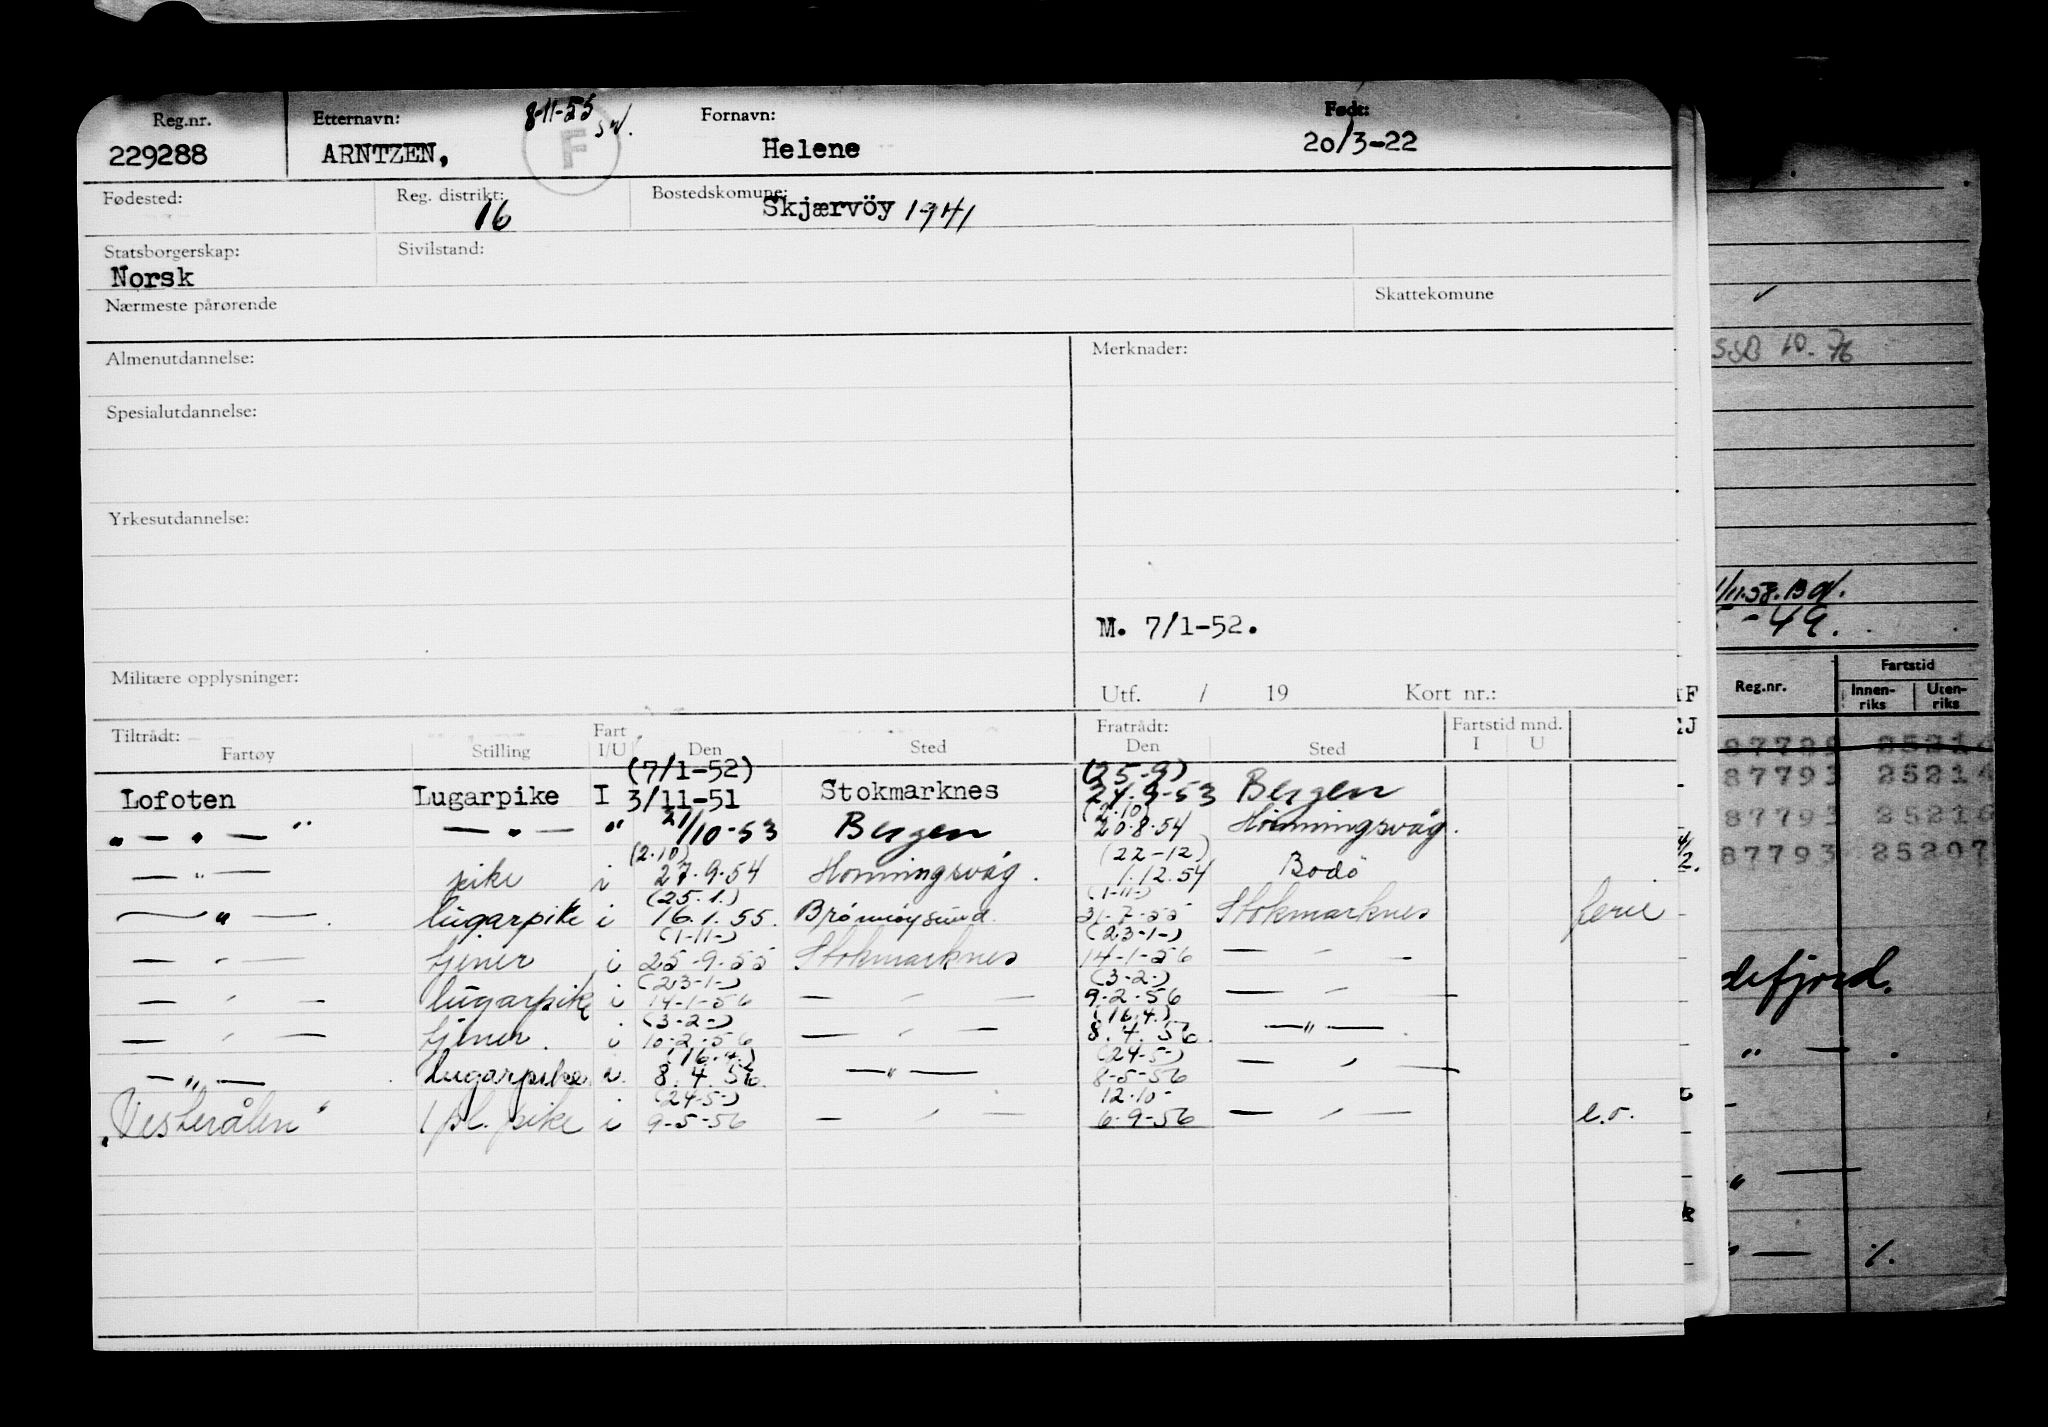 Reg.nr. Etternavn: 8-11-55 Fornavn: Født:
229288 ARNTZEN, F Helene 20/3-22
Fødested: Reg. distrikt: 16 Bostedskomune: Skjærvöy 1941
Statsborgerskap: Norsk Sivilstand:
Nærmeste pårørende Skattekomune
Almenutdannelse: Merknader:
Spesialutdannelse:
Yrkesutdannelse:
M. 7/1-52.
Militære opplysninger: Utf. / 19 Kort nr.:
Tiltrådt: Fart Fratrådt: Fartstid mnd.
Fartøy Stilling I/U Den Sted Den Sted I U
(7/1-52) (25-9)
Lofoten Lugarpike I 3/11-51 Stokmarknes 24.9-53 Bergen
(2.10)
" — " — " — " — " 21/10-53 Bergen 20.8.54 Honningsvåg.
(2.10) (22-12)
— " — pike i 27.9.54 Honningsvåg. 1.12.54 Bodö
(25.1.) (1-11-)
— " — lugarpike i 16.1.55. Brønnøysund. 31-7-55 Stokmarknes ferie
(1-11-) (23-1-)
— " — tjener i 25-9-55 Stokmarknes 14-1-56 — " —
(23-1-) (3-2-)
— " — lugarpike i 14-1-56 — " — 9-2-56 — " —
(3-2-) (16.4.)
— " — tjener. i 10-2-56 — " — 8.4.56. — " —
(16.4.) (24-5-)
— " — lugarpike i. 8.4.56. — " — 8-5-56 — " —
(24-5-) 12-10-
"Vesterålen" 1 pl. pike i 9-5-56 — " — 6-9-56 — " — e.o.
SSB 10.76
1/11.58.
-49.
Reg.nr. Fartstid
Innen-riks Uten-riks
87793 25214
87793 25216
87793 25207
defjord.
" — .
" —
" — ./.